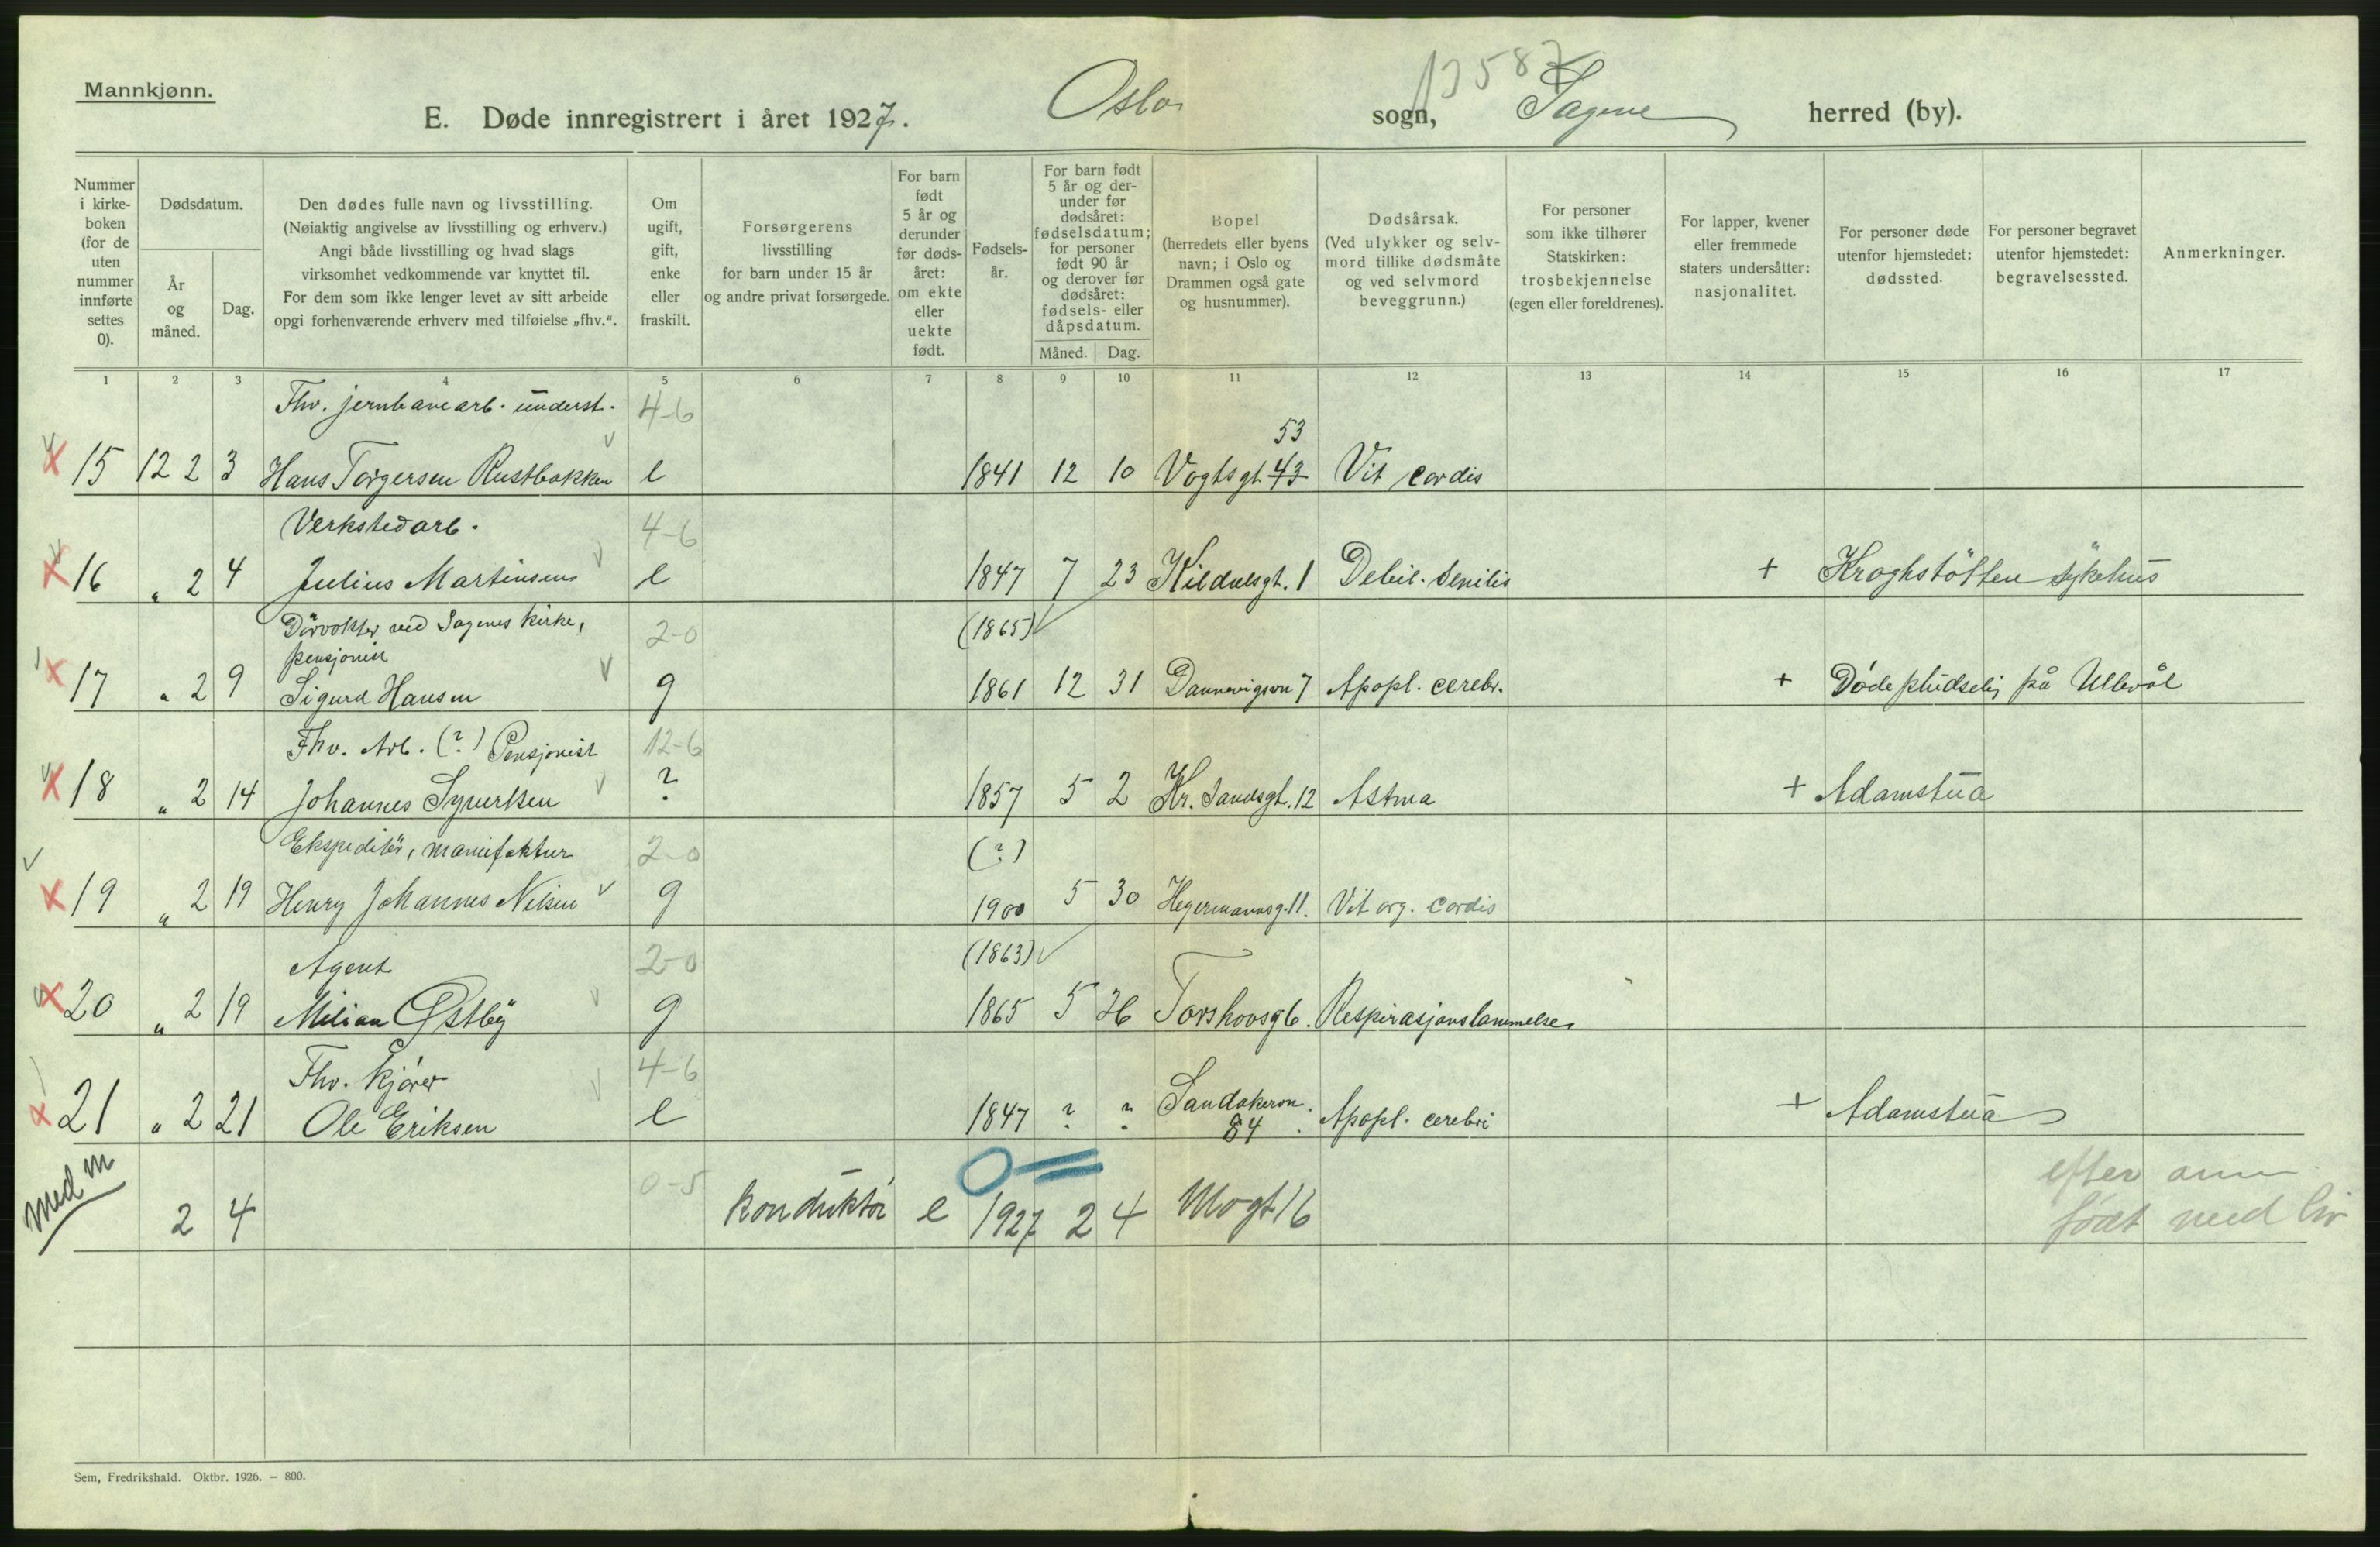 Mannkjønn.
13587
E. Døde innregistrert i året 1927. Oslo sogn, Sagene herred (by).
Nummer i kirke-boken (for de uten nummer innførte settes 0).
Dødsdatum.
År og måned.
Dag.
Den dødes fulle navn og livsstilling.
(Nøiaktig angivelse av livsstilling og erhverv.)
Angi både livsstilling og hvad slags
virksomhet vedkommende var knyttet til.
For dem som ikke lenger levet av sitt arbeide
opgi forhenværende erhverv med tilføielse „fhv.“.
Om ugift, gift, enke eller fraskilt.
Forsørgerens
livsstilling
for barn under 15 år
og andre privat forsørgede.
For barn født 5 år og derunder før døds-året: om ekte eller uekte født.
Fødsels-år.
For barn født 5 år og der-under før dødsåret: fødselsdatum; for personer født 90 år og derover før dødsåret: fødsels- eller dåpsdatum.
Måned. Dag.
Bopel
(herredets eller byens
navn; i Oslo og
Drammen også gate
og husnummer).
Dødsårsak.
(Ved ulykker og selv-
mord tillike dødsmåte
og ved selvmord
beveggrunn.)
For personer
som ikke tilhører
Statskirken:
trosbekjennelse
(egen eller foreldrenes).
For lapper, kvener
eller fremmede
staters undersåtter:
nasjonalitet.
For personer døde
utenfor hjemstedet:
dødssted.
For personer begravet
utenfor hjemstedet:
begravelsessted.
Anmerkninger.
1 2 3 4 5 6 7 8 9 10 11 12 13 14 15 16 17
Fhv. jernbanearb. underst. 4-6
53
15 12 2 3 Hans Torgersen Rustbakken e 1841 12 10 Vogtsgt. 43 Vit cordis
Verkstedarb. 4-6
16 „ 2 4 Julius Martinsen e 1847 7 23 Kildalsgt. 1 Debil. senilis + Kroghstøtten sykehus
Dørvokter ved Sagenes kirke, 2-0 (1865)
pensjonist
17 „ 2 9 Sigurd Hansen g 1861 12 31 Dannevigsvn 7 Apopl. cerebr. + Døde pludselig på Ullevål
Fhv. Arb. (?) Pensjonist 12-6
18 „ 2 14 Johannes Syvertsen ? 1857 5 2 Kr.sandsgt. 12 Astma + Adamstua
Ekspeditør, manufaktur 2-0 (?)
19 „ 2 19 Henry Johannes Nilsen g 1900 5 30 Hegermannsg. 11. Vit org. cordis
Agent 2-0 (1863)
20 „ 2 19 Milian Østby g 1865 5 Torshovsg 6. Respirasjonslammelse
Fhv. Kjører 4-6
21 „ 2 21 Ole Eriksen e 1847 ? ? Sandakervn. 84. Apopl. cerebri + Adamstua
med m
2 4 0-5 konduktør e 1927 2 4 Mogt 16 efter anm
født med liv
Sem, Fredrikshald. Oktbr. 1926. – 800.